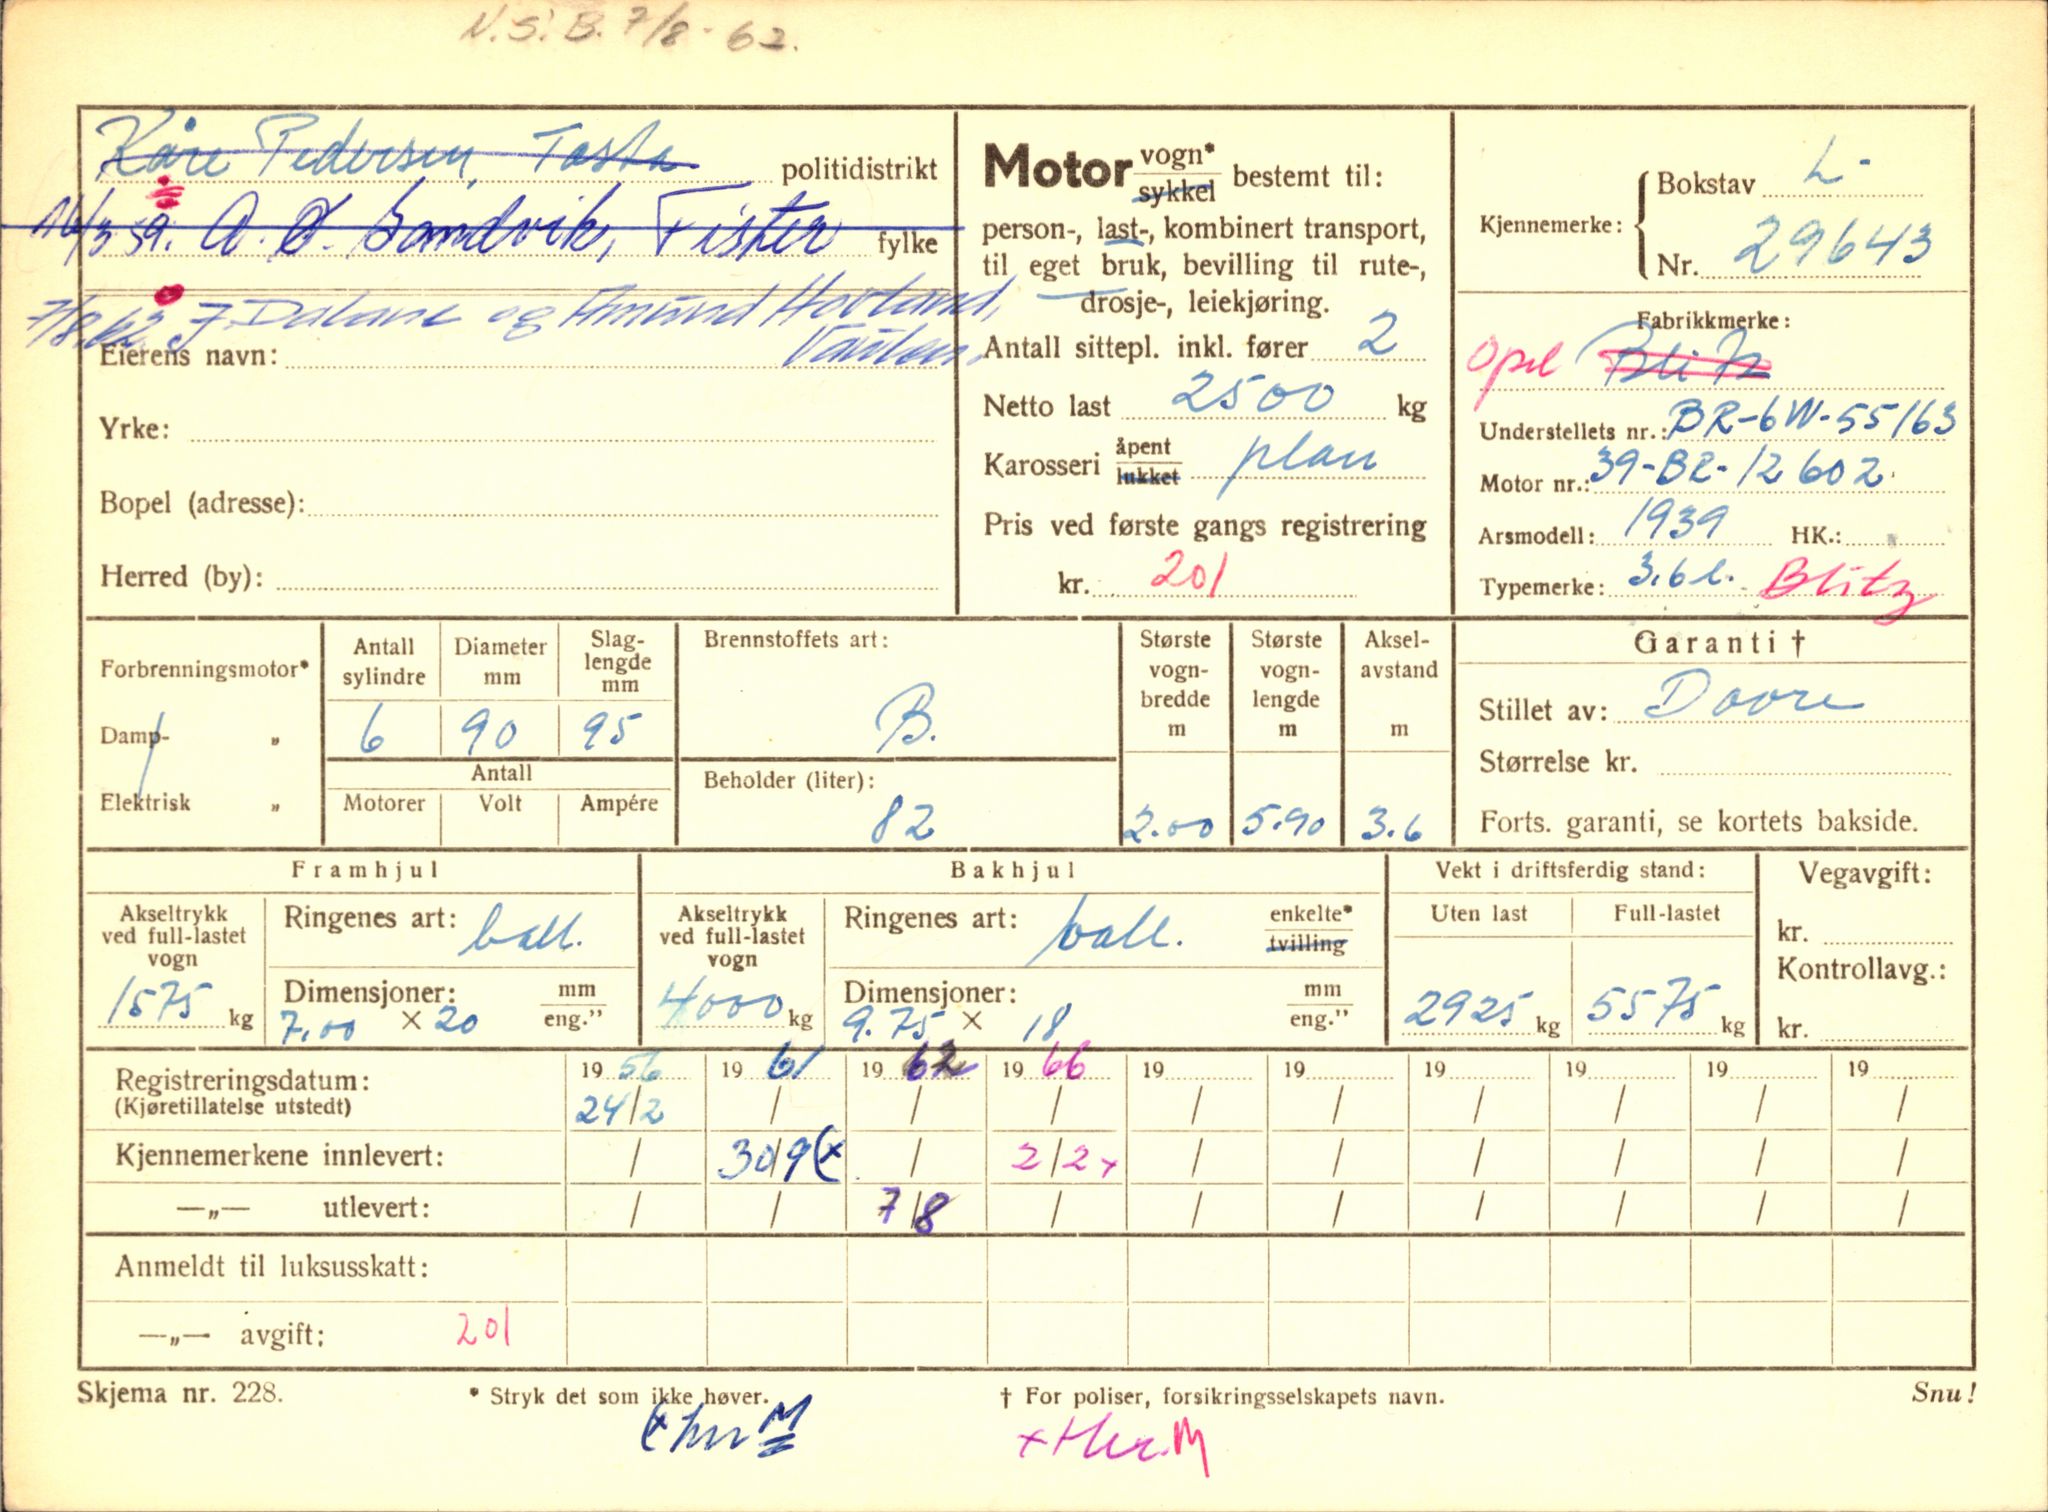 N.S.B. 7/8-62.
Kåre Pedersen, Tasta politidistrikt
16/3 59. A. Ø. Sandvik, Fister fylke
7/8.62 J. Dalane og Amund Hovland,
Eierens navn:
Yrke:
Bopel (adresse):
Herred (by):
Motor vogn* sykkel bestemt til:
person-, last-, kombinert transport,
til eget bruk, bevilling til rute-,
drosje-, leiekjøring.
Antall sittepl. inkl. fører 2
Netto last 2500 kg
Karosseri åpent lukket plan
Pris ved første gangs registrering
kr. 201
Kjennemerke: Bokstav L-
Nr. 29643
Fabrikkmerke:
Opel Blitz
Understellets nr.: BR-6W-55163
Motor nr.: 39-BR-12602
Arsmodell: 1939 HK.:
Typemerke: 3,6 l. Blitz
Forbrenningsmotor*
Damp- „
Elektrisk „
Antall sylindre Diameter mm Slag-lengde mm
6 90 95
Antall
Motorer Volt Ampére
Brennstoffets art:
B.
Beholder (liter):
82
Største vogn-bredde m Største vogn-lengde m Aksel-avstand m
2.00 5.90 3.6
Garanti †
Stillet av: Dovre
Størrelse kr.
Forts. garanti, se kortets bakside.
Framhjul
Akseltrykk ved full-lastet vogn
1575 kg
Ringenes art: ball.
Dimensjoner: mm eng."
7.00 × 20
Bakhjul
Akseltrykk ved full-lastet vogn
4000 kg
Ringenes art: ball. enkelte* tvilling
Dimensjoner: mm eng."
9.75 × 18
Vekt i driftsferdig stand:
Uten last Full-lastet
2925 kg 5575 kg
Vegavgift:
kr.
Kontrollavg.:
kr.
Registreringsdatum: 19 56 19 61 19 62 19 66 19 19 19 19 19 19
(Kjøretillatelse utstedt) 24/2 / / / / / / / / /
Kjennemerkene innlevert: / 30/9 (x / 2/2 x / / / / / /
—„— utlevert: / / 7/8 / / / / / / /
Anmeldt til luksusskatt:
—„— avgift: 201
Skjema nr. 228. * Stryk det som ikke høver. † For poliser, forsikringsselskapets navn. Snu!